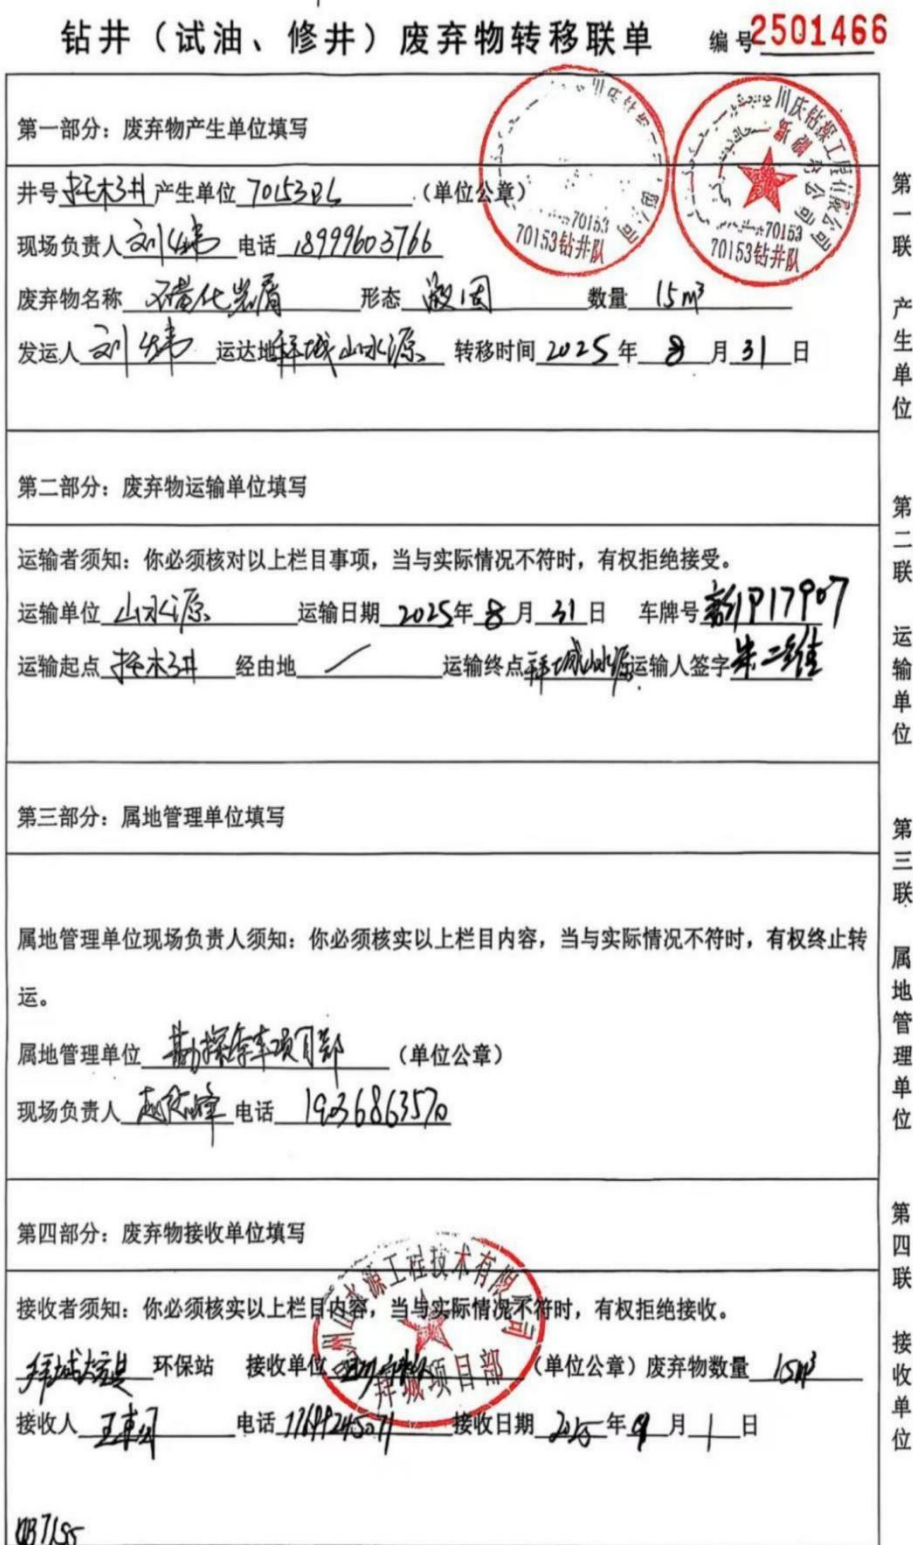 钻井（试油、修井）废弃物转移联单 编号2501466
第一部分：废弃物产生单位填写
井号 托木3井 产生单位 70153队 （单位公章）
现场负责人 刘炜 电话 18999603766
废弃物名称 不磺化岩屑 形态 液固 数量 15m³
发运人 刘炜 运达地 拜城山水源 转移时间 2025 年 8 月 31 日
川庆钻探工程有限公司
新疆分公司
70153
70153钻井队
70153
70153钻井队
第二部分：废弃物运输单位填写
运输者须知：你必须核对以上栏目事项，当与实际情况不符时，有权拒绝接受。
运输单位 山水源 运输日期 2025 年 8 月 31 日 车牌号
运输起点 托木3井 经由地 / 运输终点 拜城山水源 运输人签字
第三部分：属地管理单位填写
属地管理单位现场负责人须知：你必须核实以上栏目内容，当与实际情况不符时，有权终止转
运。
属地管理单位 项目部 （单位公章）
现场负责人 电话
第四部分：废弃物接收单位填写
接收者须知：你必须核实以上栏目内容，当与实际情况不符时，有权拒绝接收。
环保站 接收单位 （单位公章）废弃物数量 15m³
接收人 电话 接收日期 2025 年 9 月 1 日
水源工程技术有限公司
拜城项目部
第一联 产生单位
第二联 运输单位
第三联 属地管理单位
第四联 接收单位